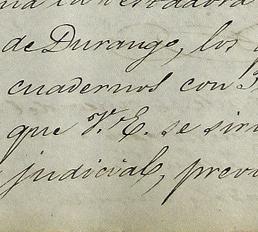 de Durango, los
cuadernos con
que V. E. se sir
judicial, previ